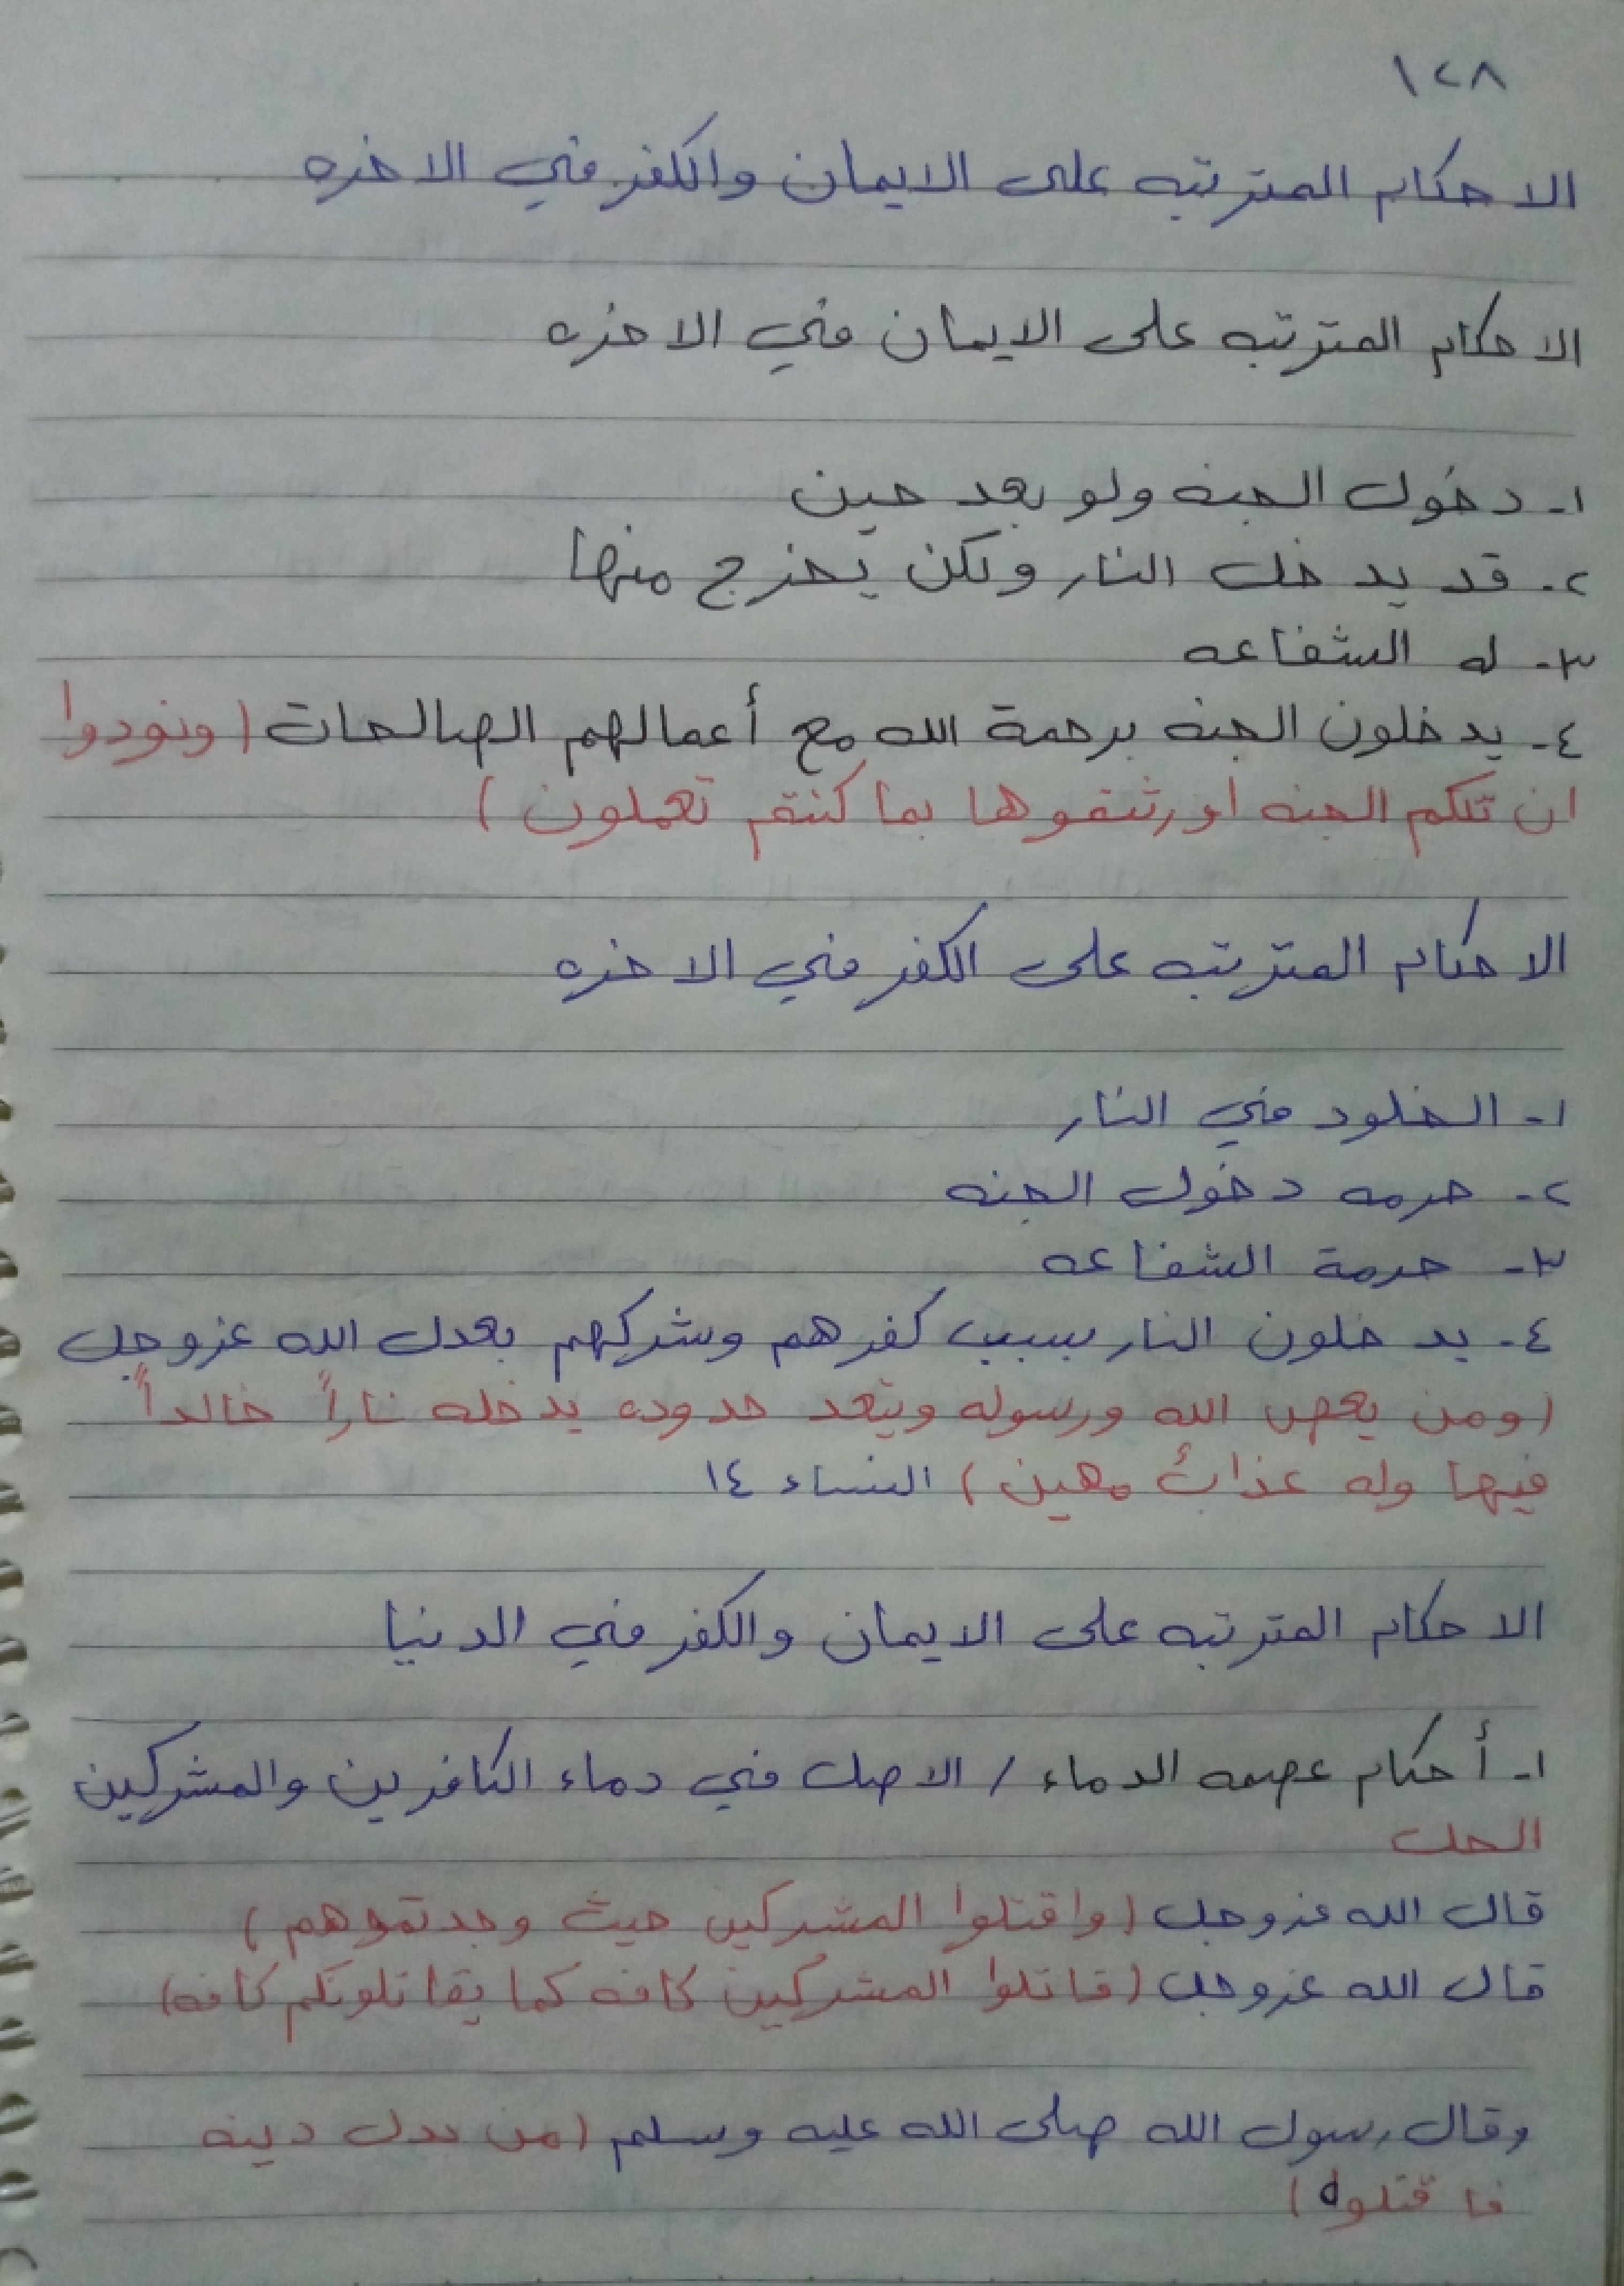 ١٢٨
الاحكام المترتبه على الايمان والكفر في الاخره
الاحكام المترتبه على الايمان في الاخره
١- دخول الجنه ولو بعد حين
٢- قد يدخل النار ولكن يخرج منها
٣- له الشفاعه
٤- يدخلون الجنه برحمة الله مع أعمالهم الصالحات (ونودوا
ان تلكم الجنه اورثتموها بما كنتم تعملون)
الاحكام المترتبه على الكفر في الاخره
١- الخلود في النار
٢- حرمه دخول الجنه
٣- حرمة الشفاعه
٤- يدخلون النار بسبب كفرهم وشركهم بعدل الله عزوجل
(ومن يعص الله ورسوله ويتعد حدوده يدخله ناراً خالداً
فيها وله عذابٌ مهين) النساء ١٤
الاحكام المترتبه على الايمان والكفر في الدنيا
١- أحكام عصمه الدماء / الاصل في دماء الكافرين والمشركين
الحل
قال الله عزوجل (واقتلوا المشركين حيث وجدتموهم)
قال الله عزوجل (قاتلوا المشركين كافه كما يقاتلونكم كافه)
وقال رسول الله صلى الله عليه وسلم (من بدل دينه
فاقتلوه)